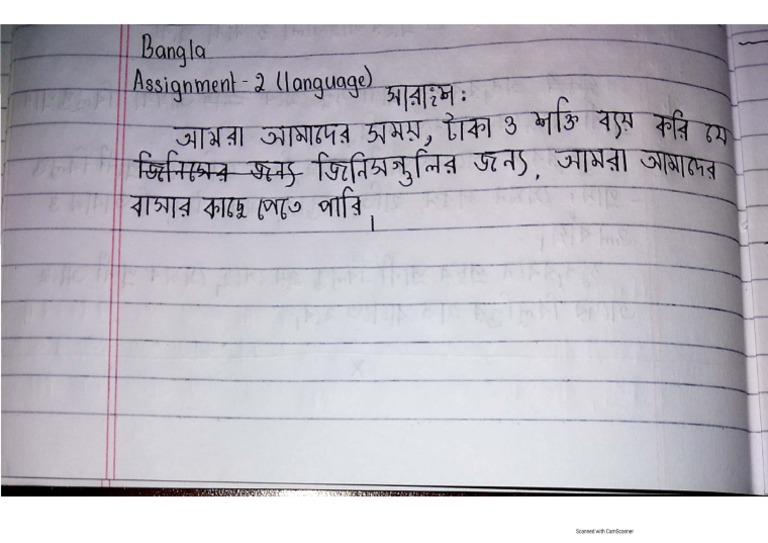 Bangla
Assignment - 2 (language)
সারাংশ:
আমরা আমাদের সময়, টাকা ও শক্তি ব্যয় করি যে
জিনিসের জন্য জিনিসগুলির জন্য, আমরা আমাদের
বাসার কাছে পেতে পারি।
Scanned with CamScanner